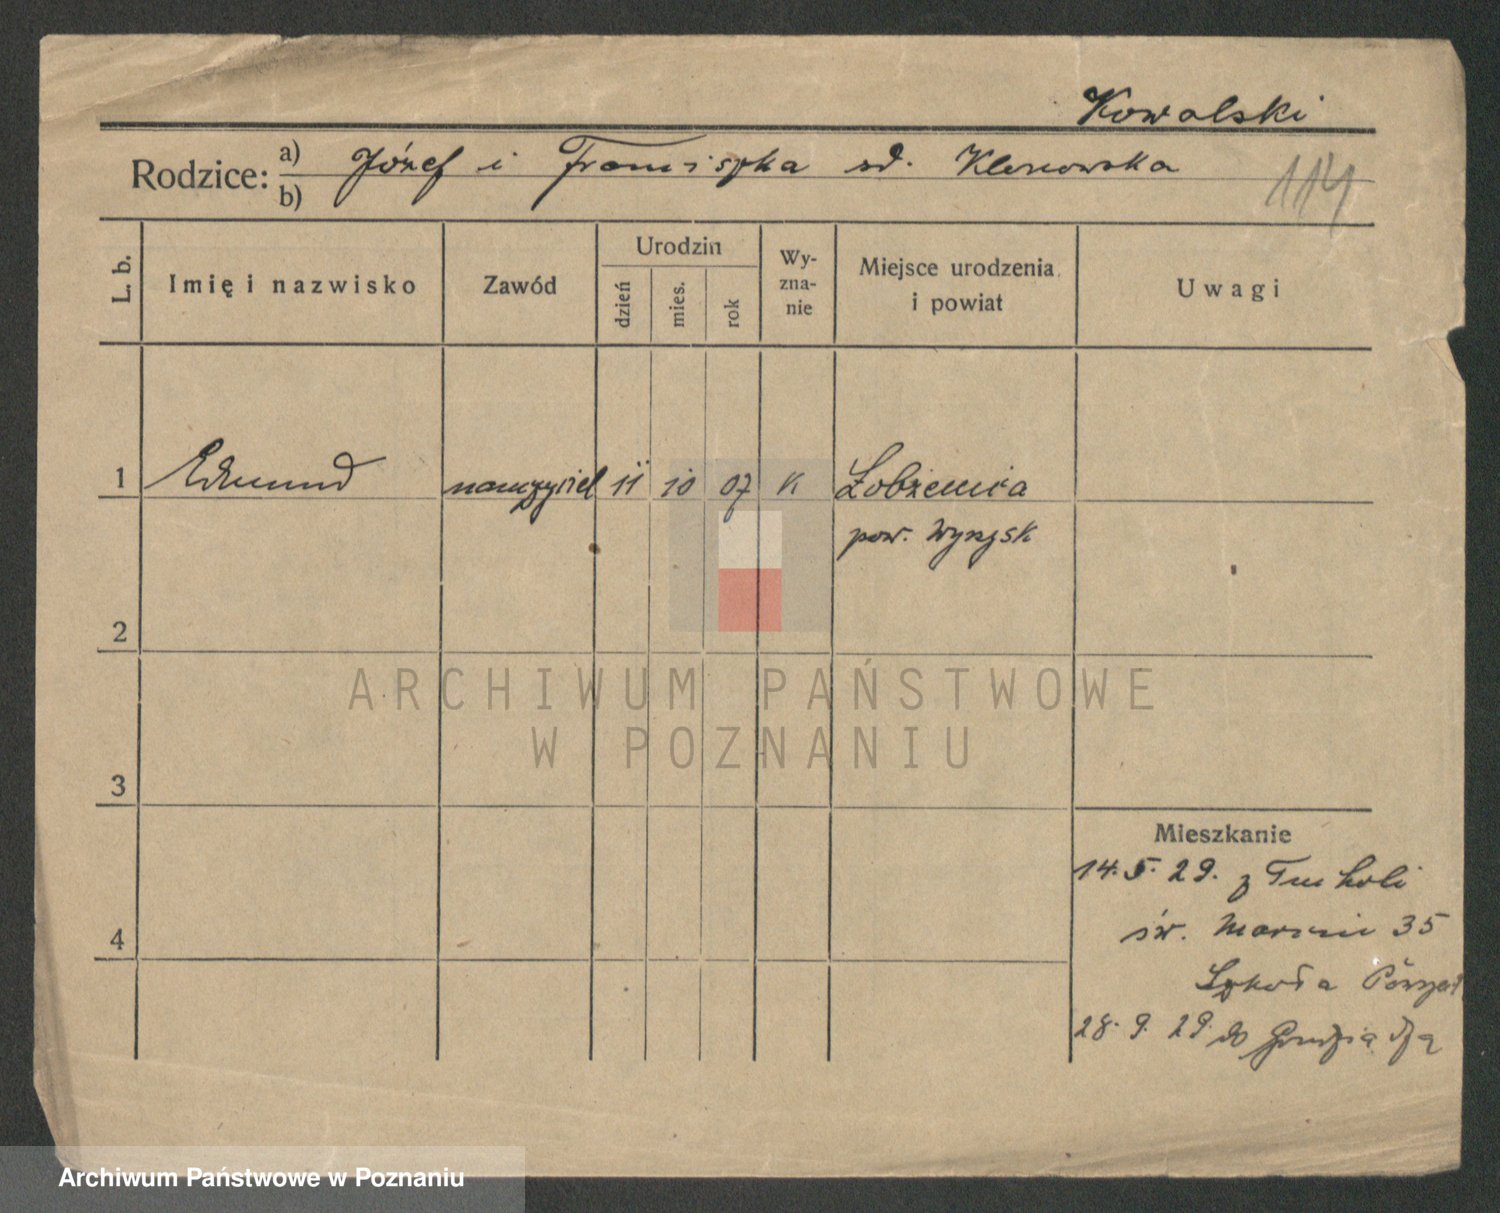 Kowalski
Rodzice: a) Józef i Franciszka zd.
b)
114
L. b.
Imię i nazwisko
Zawód
Urodzin
dzień
mies.
rok
Wy-
zna-
nie
Miejsce urodzenia
i powiat
Uwagi
1 Edmund nauczyciel 11 10 07 K Łobżenica
pow. Wyrzysk
2
3
4
Mieszkanie
14.5.29. z Tucholi
św. Marcin 35
Szkoła
28.9.29. do Grudziądza
ARCHIWUM PAŃSTWOWE
W POZNANIU
Archiwum Państwowe w Poznaniu